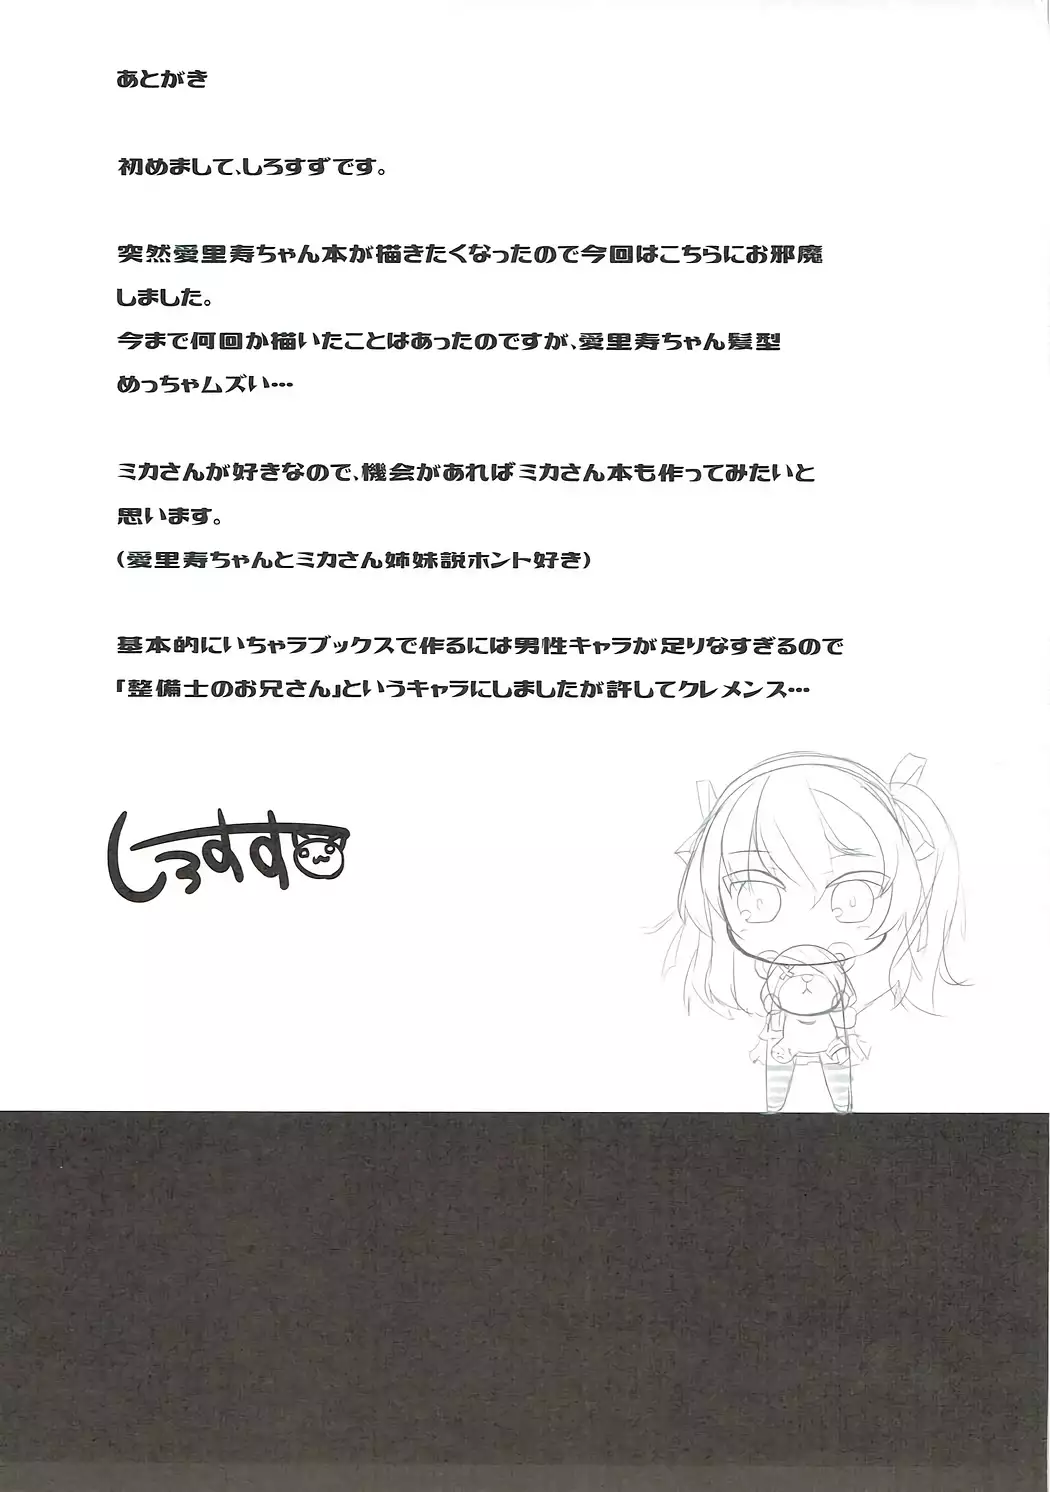 あとがき
初めまして、しろすずです。
突然愛里寿ちゃん本が描きたくなったので今回はこちらにお邪魔
しました。
今まで何回か描いたことはあったのですが、愛里寿ちゃん髪型
めっちゃムズい…
ミカさんが好きなので、機会があればミカさん本も作ってみたいと
思います。
(愛里寿ちゃんとミカさん姉妹説ホント好き)
基本的にいちゃラブックスで作るには男性キャラが足りなすぎるので
「整備士のお兄さん」というキャラにしましたが許してクレメンス…
しろすず